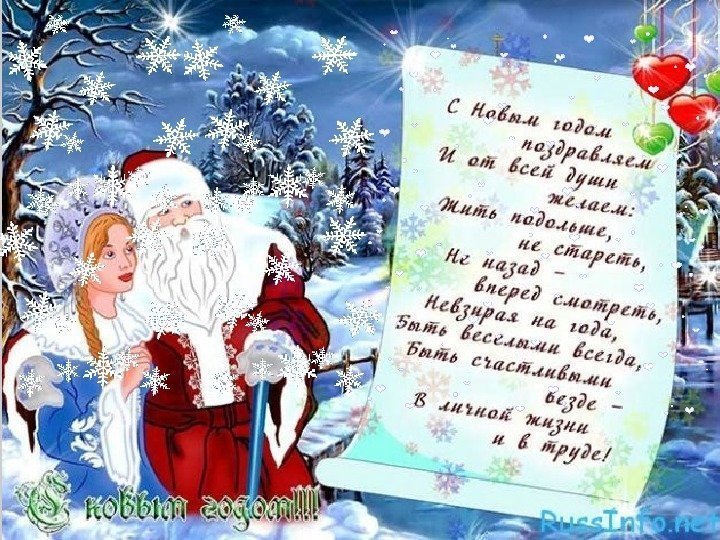 С Новым годом
поздравляем
И от всей души
желаем:
Жить подольше,
не стареть,
Не назад –
вперед смотреть,
Невзирая на года,
Быть веселыми всегда,
Быть счастливыми
везде –
В личной жизни
и в труде!
С новым годом!!!
RussInfo.net